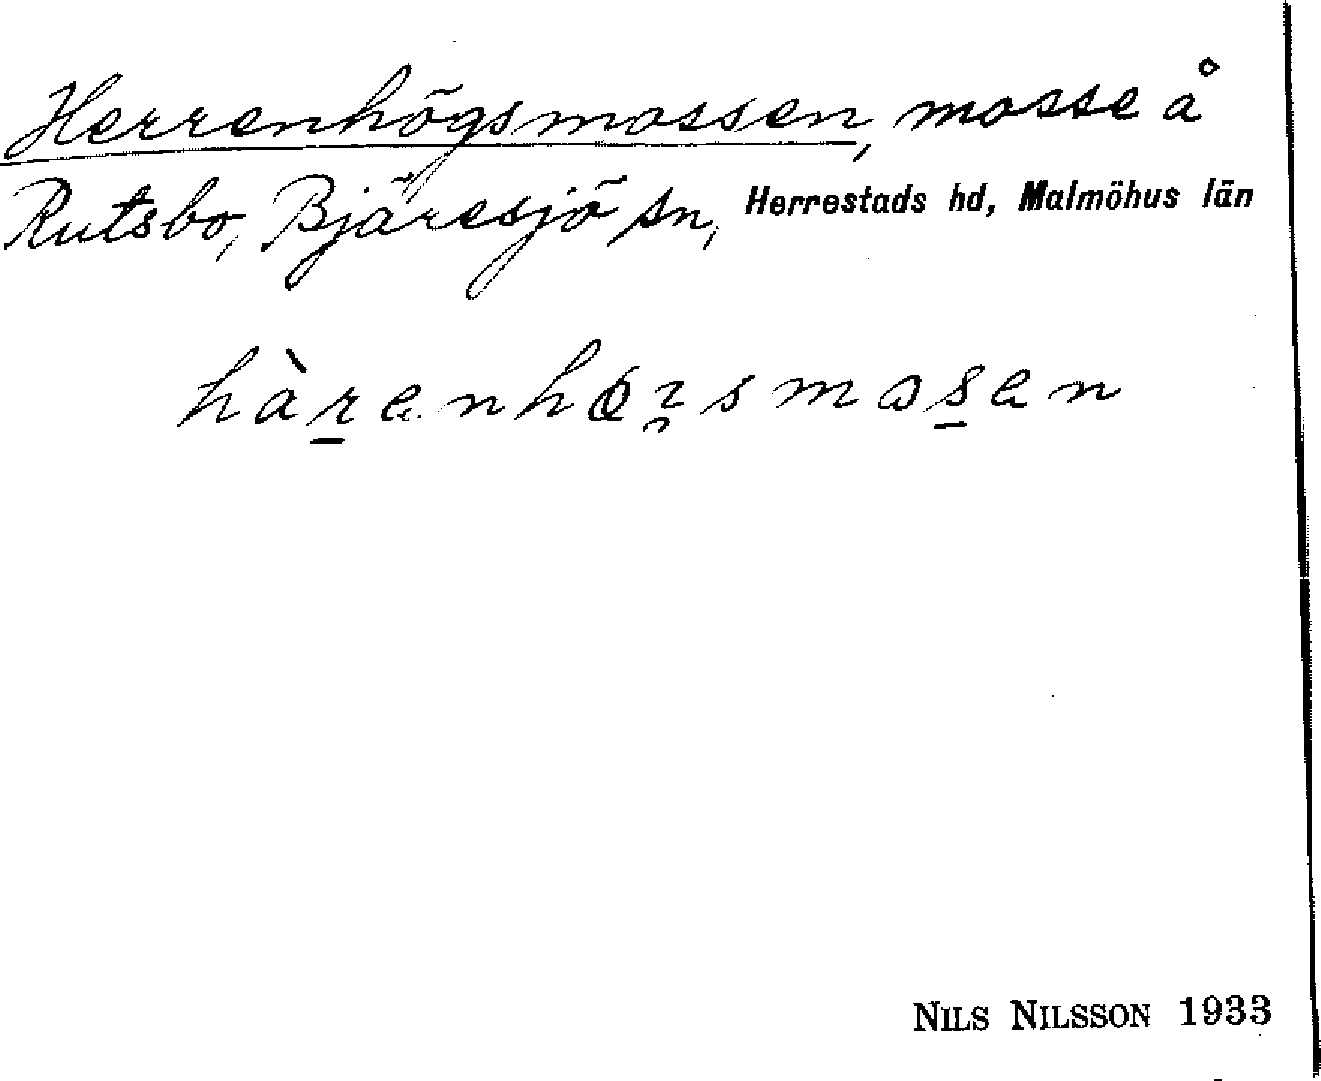 Herrenhögsmossen, mosse å
Rutsbo, Bjäresjö sn, Herrestads hd, Malmöhus län
NILS NILSSON 1933